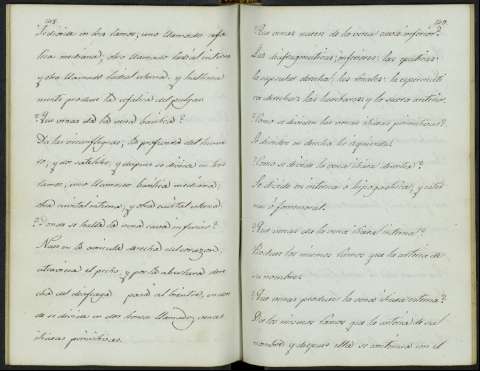 148.
Se divide en dos ramos; uno llamado cefa-
lica mediana, otro llamado radial interna
y otro llamado radial externa, y
mente produce la cefalica del pulgar.
¿Que venas da la vena basilica?
Da las circunflegeas, la profunda del hume-
ro, y sus satelites, y despues se divide en tres
ramos; uno llamado basilica mediana,
otra cuvital interna, y otra cuvital externa.
¿Donde se halla la vena cava inferior?
Nace en la auricula derecha del corazon,
atraviesa el pecho, y por la abertura dere-
cha del diafragma pasa al vientre, en don-
de se divide en dos llamados venas
iliacas primitivas.
149.
¿Que venas nacen de la vena cava inferior?
Las diafragmaticas inferiores; las epaticas;
la capsular derecha; las renales; la espermati-
ca derecha; las lumbares; y la sacra anterior.
¿Como se dividen las venas iliacas primitivas?
Se dividen en derecha é izquierda.
¿Como se divide la vena iliaca derecha?
Se divide en interna ó hipogastrica, y ester-
na ó femoral.
¿Que venas da la vena iliaca interna?
Produce los mismos ramos que la arteria de
su nombre.
¿Que venas produce la vena iliaca esterna?
Da los mismos ramos que la arteria de su
nombre y despues ella se continua con el